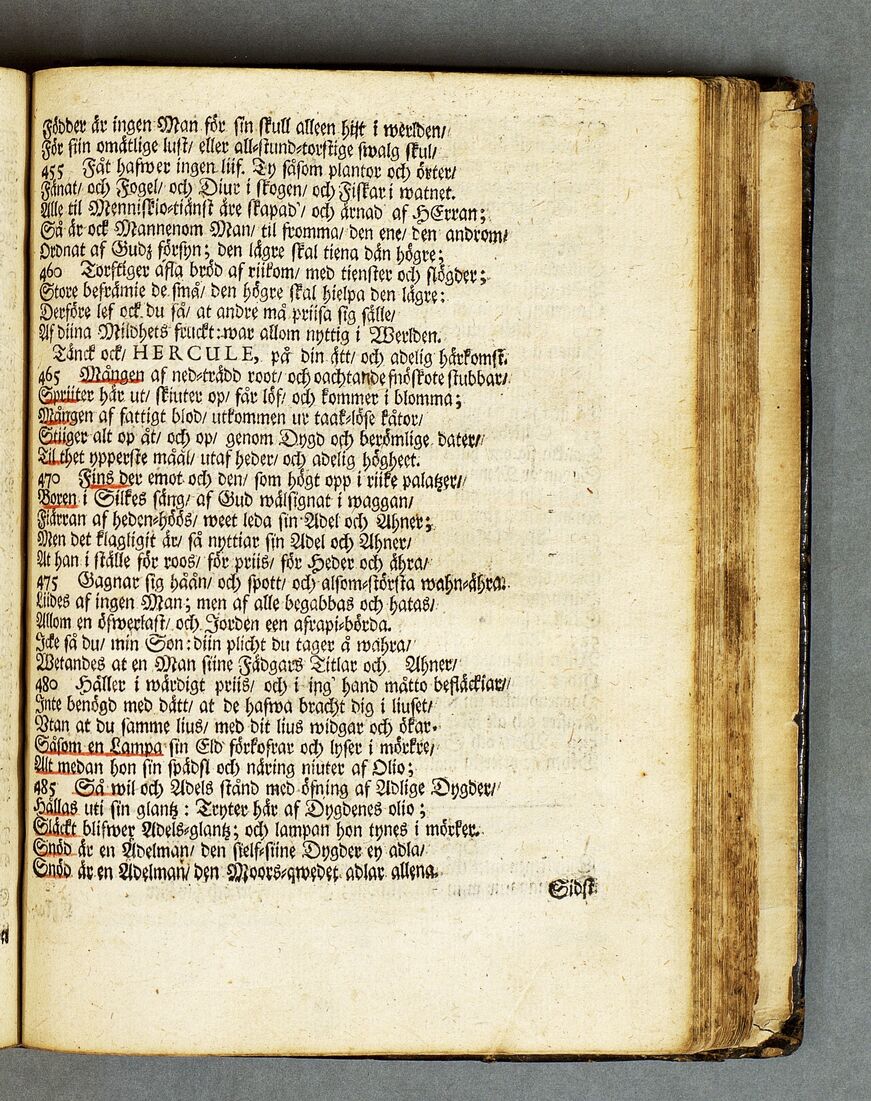 Födder är ingen Man för sin skull alleen hijt i werlden/
För siin omätlige lust/ eller all-stund-torstige swalg skul/
455 Fåt hafwer ingen liif. Ty såsom plantor och örter/
Fänat/ och Fogel/ och Diur i skogen/ och Fiskar i watnet.
Alle til Menniskio-tiänst äre skapad'/ och ärnad' af HErran;
Så är ock Mannenom Man/ til fromma/ den ene/ den androm/
Ordnat af Gudz försyn; den lägre skal tiena dän högre;
460 Torftiger afla bröd af riikom/ med tienster och slögder;
Store befrämie de små/ den högre skal hielpa den lägre:
Derföre lef ock du så/ at andre må priisa sig sälle/
Af diina Mildhets fruckt: war allom nyttig i Werlden.
Tänck ock/ HERCULE, på din ätt/ och adelig härkomst.
465 Mången af ned-trädd root/ och oachtande snöskote stubbar/
Spriiter här ut/ skiuter op/ får löf/ och kommer i blomma;
Mången af fattigt blod/ utkommen ur taak-löse kåtor/
Stiiger alt op åt/ och op/ genom Dygd och berömlige dater/
Til thet ypperste måål/ utaf heder/ och adelig högheet.
470 Fins der emot och den/ som högt opp i riike palatzer/
Boren i Silkes säng/ af Gud wälsignat i waggan/
Fiärran af heden-höös/ weet leda sin Adel och Ahner;
Men det klagligit är/ så nyttiar sin Adel och Ahner/
At han i ställe för roos/ för priis/ för Heder och ähra/
475 Gagnar sig håån/ och spott/ och alsom-största wahn-ähra.
Liides af ingen Man; men af alle begabbas och hatas/
Allom en öfwerlast/ och Jorden een afrapi-börda.
Icke så du/ min Son: diin plicht du tager å wahra/
Wetandes at en Man siine Fädgars Titlar och Ahner/
480 Häller i wärdigt priis/ och i ing' hand måtto befläckiar/
Inte benögd med dätt/ at de hafwa bracht dig i liuset/
Vtan at du samme lius/ med dit lius widgar och ökar.
Såsom en Lampa sin Eld förkofrar och lyser i mörkre/
Alt medan hon sin spädsl och näring niuter af Olio;
485 Så wil och Adels stånd med öfning af Adlige Dygder/
Hållas uti sin glantz: Tryter här af Dygdenes olio;
Släckt blifwer Adels-glantz; och lampan hon tynes i mörker.
Snöd är en Ädelman/ den sielf-siine Dygder ey adla/
Snöd är en Ädelman/ den Moors-qwedet adlar allena.
Sidst